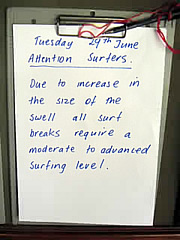 Tuesday 24th June
Attention Surfers.
Due to increase in
the size of the
swell all surf
breaks require a
moderate to advanced
surfing level.